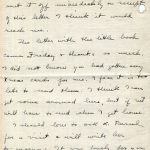 sent it off immediately on receipt
of this letter I think it would
reach me.
The letter with the little book
came Friday & thanks so much
I did not know you had gotten any
Xmas cards for me. I fear it is too
late to send them. I think I can
get some around here, but if not
will have to send when I get home.
I should love to ask the
for a visit & will write her
It was lovely for